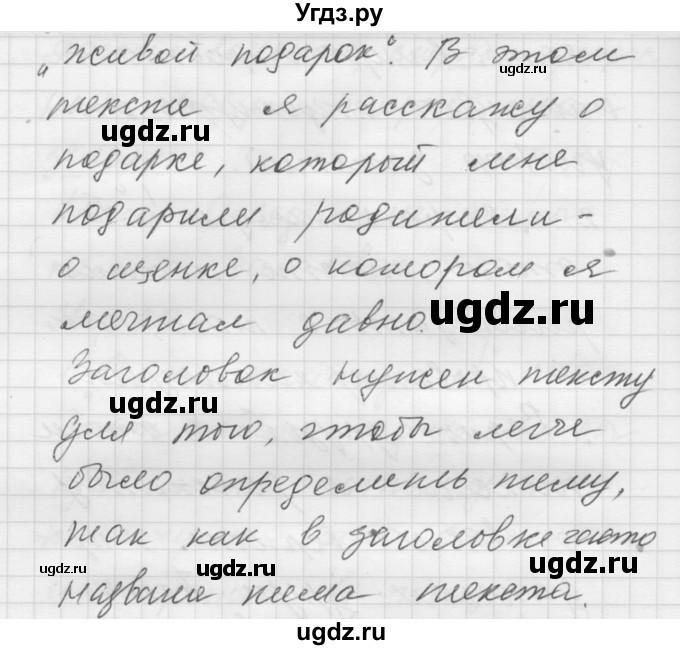 Угдз.ру
„Живой подарок“. В этом
ugdz.ru
тексте я расскажу о
ugdz.ru
подарке, который мне
подарили родители -
о щенке, о котором я
мечтал давно.
ugdz.ru
Заголовок нужен тексту
ugdz.ru
для того, чтобы легче
было определить тему,
так как в заголовке часто
ugdz.ru
ugdz.ru
ugdz.ru
ugdz.ru
названа тема текста.
ugdz.ru